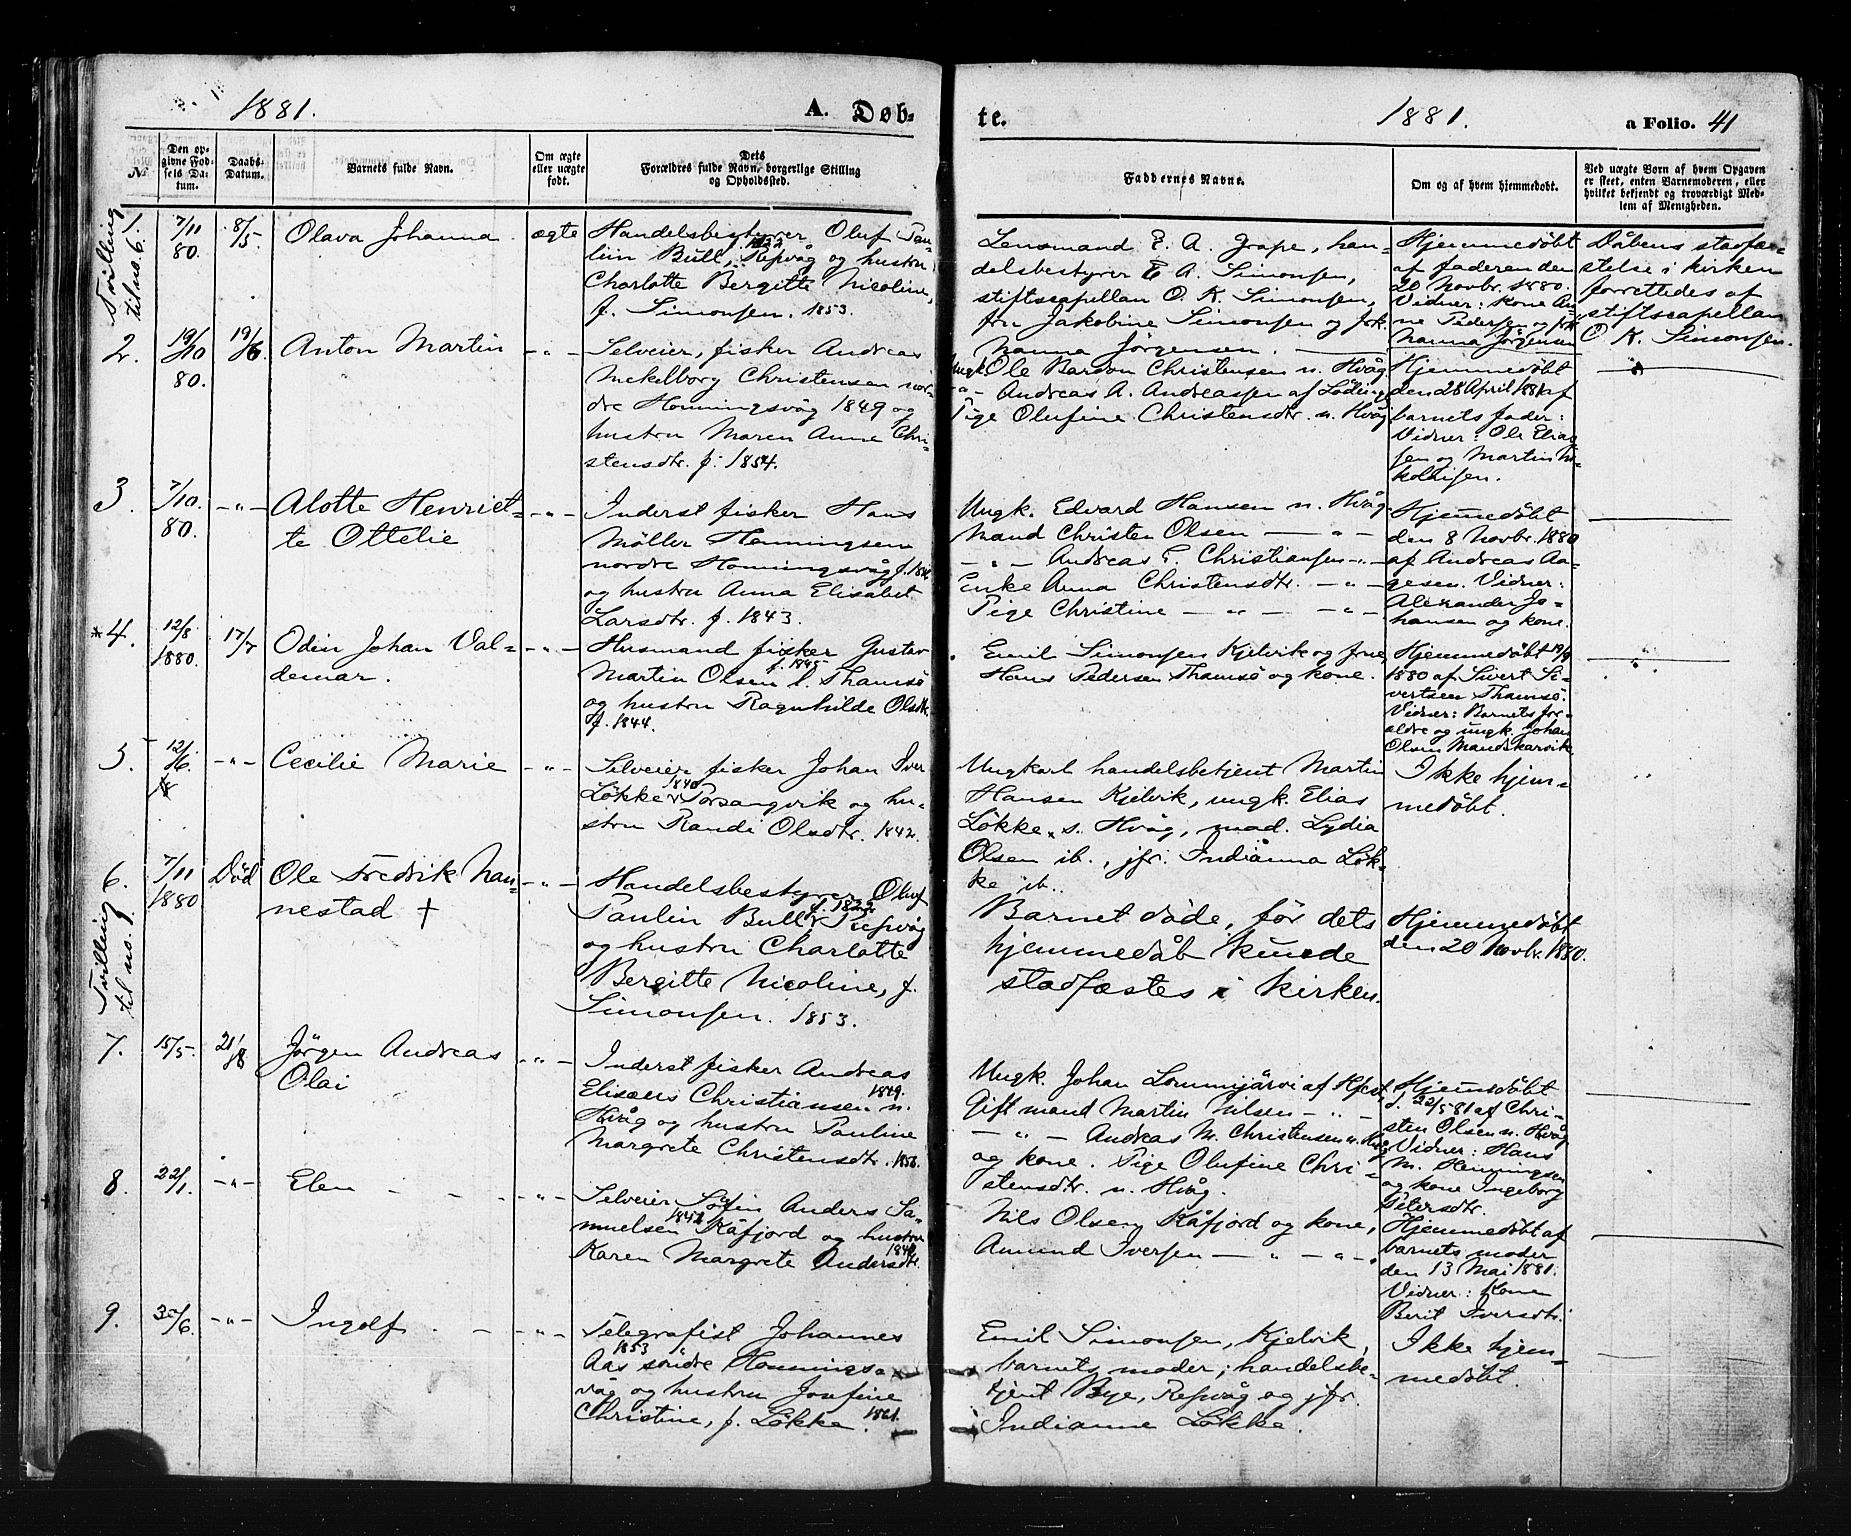 1881.
A. Døb-
te.
1881.
a Folio. 41
No
Den op-
givne Fød-
sels Da-
tum.
Daabs-
Datum.
Barnets fulde Navn.
Om ægte
eller uægte
født.
Dets
Forældres fulde Navn, borgerlige Stilling
og Opholdssted.
Faddernes Navne.
Om og af hvem hjemmedøbt.
Ved uægte Børn af hvem Opgaven
er skeet, enten Barnemoderen, eller
hvilket bekjendt og troværdigt Med-
lem af Menigheden.
Tvilling
til no. 6.
1
7/11
80.
8/5.
Olava Johanna
ægte
Handelsbestyrer Oluf Pau-
lin Bull, f. 1822 Repvåg og hustru
Charlotte Bergitte Nicoline,
f. Simonsen. 1853.
Lensmand E. A. Grape, han-
delsbestyrer E A. Simonsen,
stiftscapellan O. K. Simonsen,
fru Jakobine Simonsen og frk.
Nanna Jørgensen.
Hjemmedøbt
af faderen den
20 Novbr. 1880.
Vidner: kone An-
ne Pedersen og frk
Nanna Jørgensen
Dåbens stadfæ-
stelse i kirken
forrettedes af
stiftscapellan
O K. Simonsen.
2.
19/10
80.
19/6
Anton Martin
-"-
Selveier, fisker Andreas
Mekelborg Christensen nor-
dre Honningsvåg 1849 og
hustru Maren Anne Chri-
stensdtr. f. 1854.
Ungk. Ole Bardon Christensen n. Hvåg.
-"- Andreas A. Andreassen af Lødingen
Pige Olufine Christensdtr. n. Hvåg
Hjemmedøbt
den 28 April 1881 af
barnets fader:
Vidner: Ole Elias-
sen og Martin Ni-
kolaisen.
3.
7/10.
80.
-"-
Alotte Henriet-
te Ottelie
-"-
Inderst fisker Hans
Møller Henningsen
nordre Honningsvåg
og hustru Anna Elisabet
Larsdtr. f. 1843.
Ungk. Edvard Hansen n. Hvåg.
Mand Christen Olsen -"-
-"- Andreas E. Christiansen -"-
Enke Anna Christensdtr. -"-
Pige Christine -"- -"-
Hjemmedøbt
den 8 Novbr. 1880
af Andreas Aa-
gesen. Vidner:
Alexander Jo-
hansen og kone.
*4.
12/8
1880.
17/7
Odin Johan Val-
demar.
-"-
Husmand fisker Gustav
Martin Olsen f. 1845 l. Thamsø
og hustru Ragnhilde Olsdtr.
f. 1844.
Emil Simonsen Kjelvik og frue,
Hans Pedersen Thamsø og kone.
Hjemmedøbt 19/9
1880 af Sivert Si-
vertsen Thamsø.
Vidner: Barnets for-
ældre og ungk. Johan
Olsen Mandskarvik.
5.
12/6.
-"-
Cecilie Marie
-"-
Selveier fisker Johan Iver
Løkke 1840 Porsangvik og hu-
stru Randi Olsdtr. 1842.
Ungkarl handelsbetjent Martin
Hansen Kjelvik, ungk. Elias
Løkke, s. Hvåg, mad. Lydia
Olsen ib., jfr. Indianna Løk-
ke ib.
Ikke hjem-
medøbt.
Tvilling
til no. 1.
6.
7/11
1880
Død
Ole Fredrik Nan-
nestad †
-"-
Handelsbestyrer Oluf
Paulin Bull f. 1822 Repvåg
og hustru Charlotte
Bergitte Nicoline, f.
Simonsen. 1853.
Barnet døde, før dets
hjemmedåb kunde
stadfæstes i kirken.
Hjemmedøbt
den 20 Novbr. 1880.
7.
15/5.
21/8
Jørgen Andreas
Olai
-"-
Inderst fisker Andreas
Elisæus Christiansen 1849. n.
Hvåg og hustru Pauline
Margrete Christensdtr. 1856.
Ungk. Johan Lommijärvi af Hfest,
Gift mand Martin Nilsen -"-
-"- Andreas M. Christensen n. Hvåg
og kone. Pige Olufine Chri-
stensdtr. n. Hvåg.
Hjemmedøbt
d. 22/5 81 af Chri-
sten Olsen n. Hvåg
Vidner: Hans
M. Henningsen
og kone Ingeborg
Petersdtr.
8.
22/1.
-"-
Elen
-"-
Selveier Søfin Anders Sa-
muelsen 1842 Kåfjord og hustru
Karen Margrete Andersdtr. 1840.
Nils Olsen Kåfjord og kone,
Amund Iversen -"- -"-
Hjemmedøbt af
barnets moder
den 13 Mai 1881.
Vidner: Kone
Berit Iversdtr.
9.
30/6.
-"-
Ingolf
-"-
Telegrafist Johannes
Aas 1853 søndre Honnings-
våg og hustru Josefine
Christine, f. Løkke. 1861.
Emil Simonsen, Kjelvik,
barnets moder; handelsbe-
tjent Bye, Repvåg og jfr.
Indianne Løkke.
Ikke hjem-
medøbt.